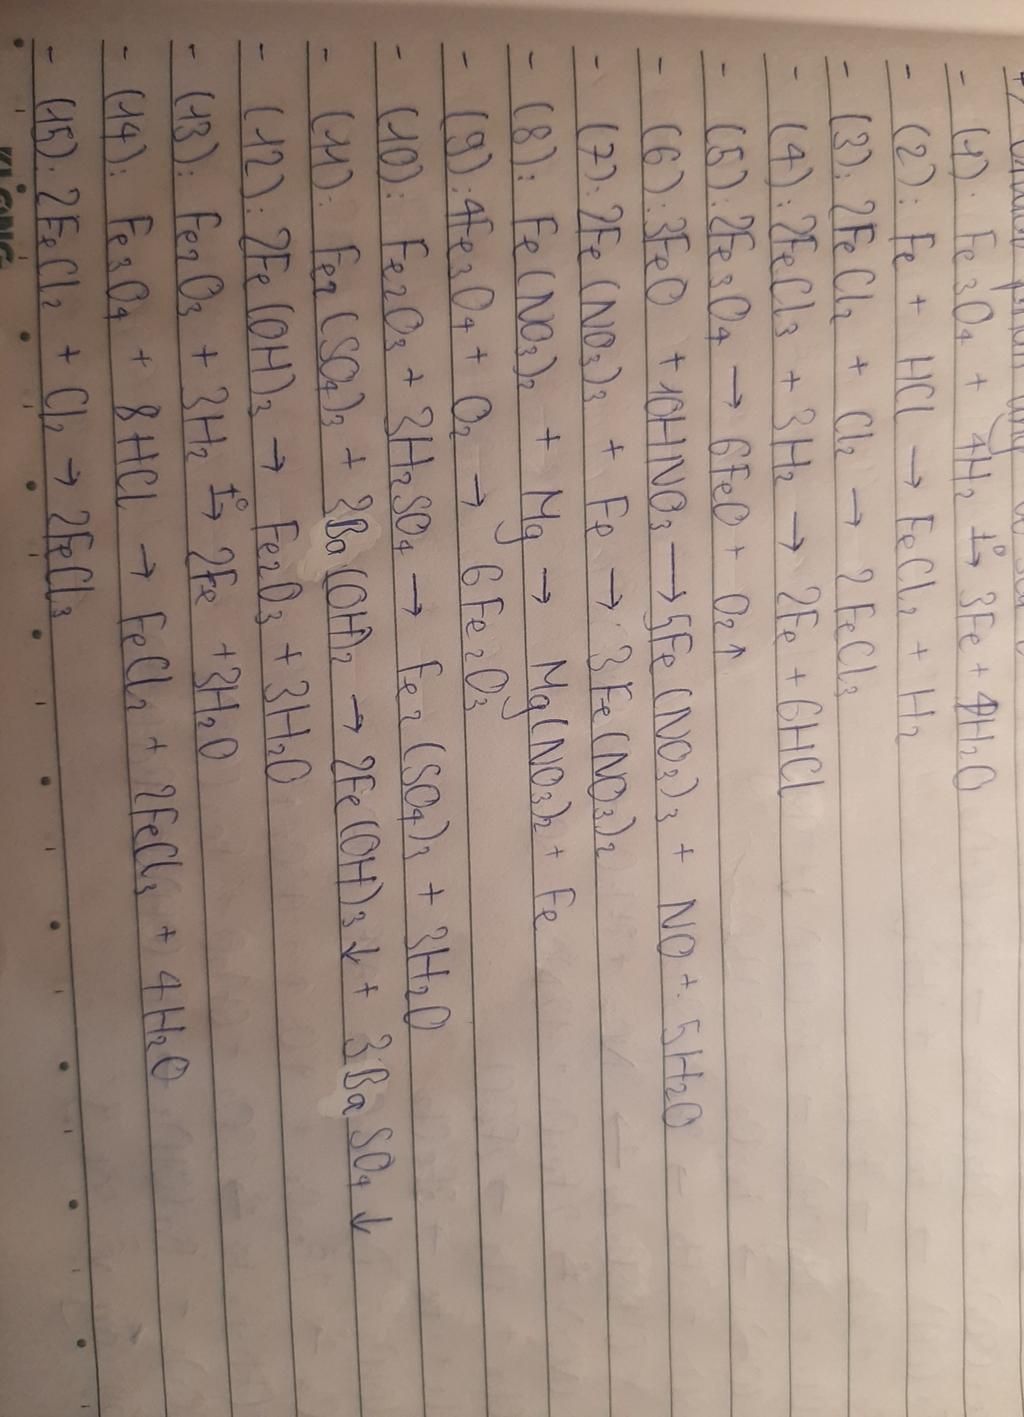 - (1): Fe₃O₄ + 4H₂ t°→ 3Fe + 4H₂O
- (2): Fe + HCl → FeCl₂ + H₂
- (3): 2FeCl₂ + Cl₂ → 2FeCl₃
- (4): 2FeCl₃ + 3H₂ → 2Fe + 6HCl
- (5): 2Fe₃O₄ → 6FeO + O₂↑
- (6): 3FeO + 10HNO₃ → 5Fe(NO₃)₃ + NO + 5H₂O
- (7): 2Fe(NO₃)₃ + Fe → 3Fe(NO₃)₂
- (8): Fe(NO₃)₂ + Mg → Mg(NO₃)₂ + Fe
- (9): 4Fe₃O₄ + O₂ → 6Fe₂O₃
- (10): Fe₂O₃ + 3H₂SO₄ → Fe₂(SO₄)₃ + 3H₂O
- (11): Fe₂(SO₄)₃ + 3Ba(OH)₂ → 2Fe(OH)₃↓ + 3BaSO₄↓
- (12): 2Fe(OH)₃ → Fe₂O₃ + 3H₂O
- (13): Fe₂O₃ + 3H₂ t°→ 2Fe + 3H₂O
- (14): Fe₃O₄ + 8HCl → FeCl₂ + 2FeCl₃ + 4H₂O
- (15): 2FeCl₂ + Cl₂ → 2FeCl₃